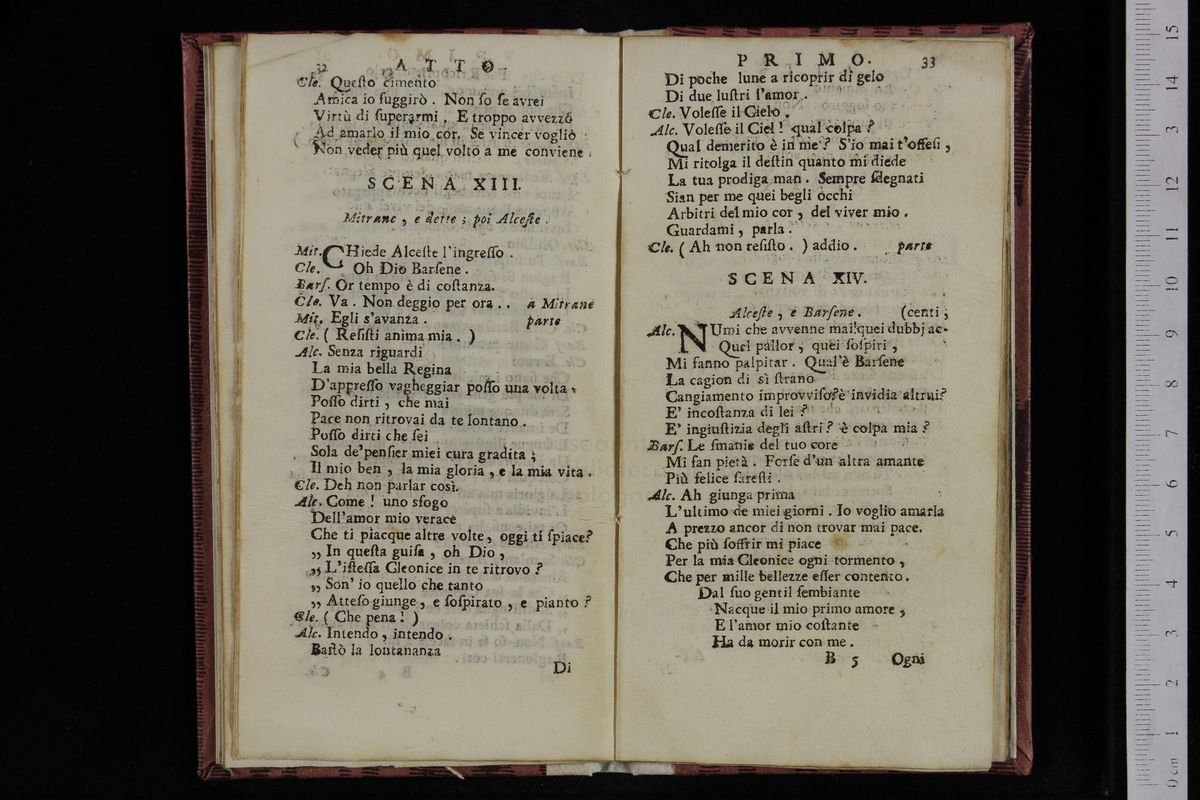 32 ATTO.
Cle. Queſto cimento
Amica io fuggirò. Non ſo ſe avrei
Virtù di ſuperarmi. E troppo avvezzo
Ad amarlo il mio cor. Se vincer voglio
Non veder più quel volto a me conviene.
SCENA XIII.
Mitrane, e dette; poi Alceſte.
Mit. CHiede Alceſte l'ingreſſo.
Cle. Oh Dio Barſene.
Barſ. Or tempo è di coſtanza.
Cle. Va. Non deggio per ora.. a Mitrane
Mit. Egli s'avanza. parte
Cle. (Reſiſti anima mia.)
Alc. Senza riguardi
La mia bella Regina
D'appreſſo vagheggiar poſſo una volta.
Poſſo dirti, che mai
Pace non ritrovai da te lontano.
Poſſo dirti che ſei
Sola de'penſier miei cura gradita;
Il mio ben, la mia gloria, e la mia vita.
Cle. Deh non parlar così.
Alc. Come! uno sfogo
Dell'amor mio verace
Che ti piacque altre volte, oggi ti ſpiace?
,, In queſta guiſa, oh Dio,
,, L'iſteſſa Cleonice in te ritrovo?
,, Son' io quello che tanto
,, Atteſo giunge, e ſoſpirato, e pianto?
Cle. (Che pena!)
Alc. Intendo, intendo.
Baſtò la lontananza
Di
PRIMO. 33
Di poche lune a ricoprir di gelo
Di due luſtri l'amor.
Cle. Voleſſe il Cielo.
Alc. Voleſſe il Ciel! qual colpa?
Qual demerito è in me? S'io mai t'offeſi,
Mi ritolga il deſtin quanto mi diede
La tua prodiga man. Sempre ſdegnati
Sian per me quei begli occhi
Arbitri del mio cor, del viver mio.
Guardami, parla.
Cle. (Ah non reſiſto.) addio. parte
SCENA XIV.
Alceſte, e Barſene. (centi,
Alc. NUmi che avvenne mai! quei dubbj ac-
Quel pallor, quei ſoſpiri,
Mi fanno palpitar. Qual'è Barſene
La cagion di sì ſtrano
Cangiamento improvviſo? è invidia altrui?
E' incoſtanza di lei?
E' ingiuſtizia degli aſtri? è colpa mia?
Barſ. Le ſmanie del tuo core
Mi fan pietà. Forſe d'un altra amante
Più felice ſareſti.
Alc. Ah giunga prima
L'ultimo de miei giorni. Io voglio amarla
A prezzo ancor di non trovar mai pace.
Che più ſoffrir mi piace
Per la mia Cleonice ogni tormento,
Che per mille bellezze eſſer contento.
Dal ſuo gentil ſembiante
Nacque il mio primo amore,
E l'amor mio coſtante
Ha da morir con me.
B 5 Ogni
0 cm 1 2 3 4 5 6 7 8 9 10 11 12 13 14 15